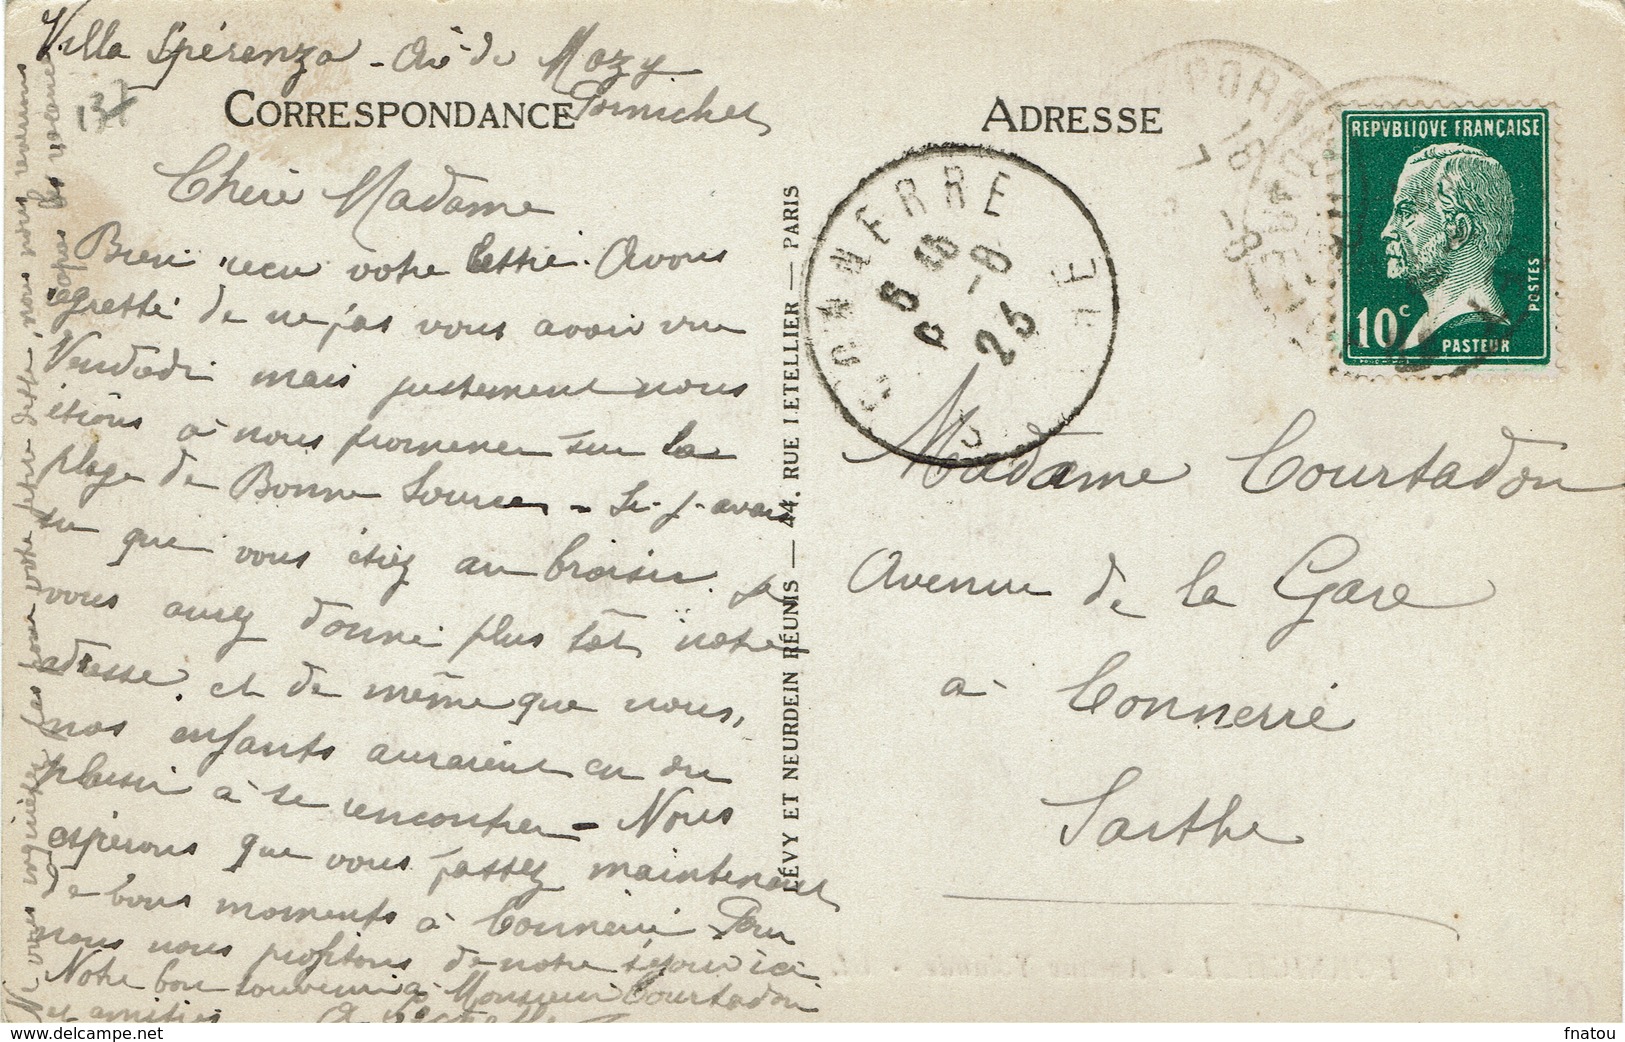 Villa Spéranza - Av. de Mazy
Pornichet
137
CORRESPONDANCE
Chère Madame
Bien reçu votre lettre. Avons
regretté de ne pas vous avoir vue
Vendredi mais justement nous
étions à nous promener sur la
plage de Bonne Source - Si j'avais
su que vous étiez au Croisic je
vous aurez donné plus tôt notre
adresse. et de même que nous,
nos enfants auraient eu du
plaisir à se rencontrer - Nous
espérons que vous passez maintenant
de bons moments à Connerré Pour
nous nous profitons de notre séjour ici
Notre bon souvenir à Monsieur Courtadon
et amitiés
Ne vous inquiétez pas pour votre petite dette, nous nous reverrons
LÉVY ET NEURDEIN RÉUNIS — 44, RUE LETELLIER — PARIS
ADRESSE
CONNERRÉ
25
REPVBLIQVE FRANÇAISE
10c
POSTES
PASTEUR
Madame Courtadon
Avenue de la Gare
à Connerré
Sarthe
fnatou